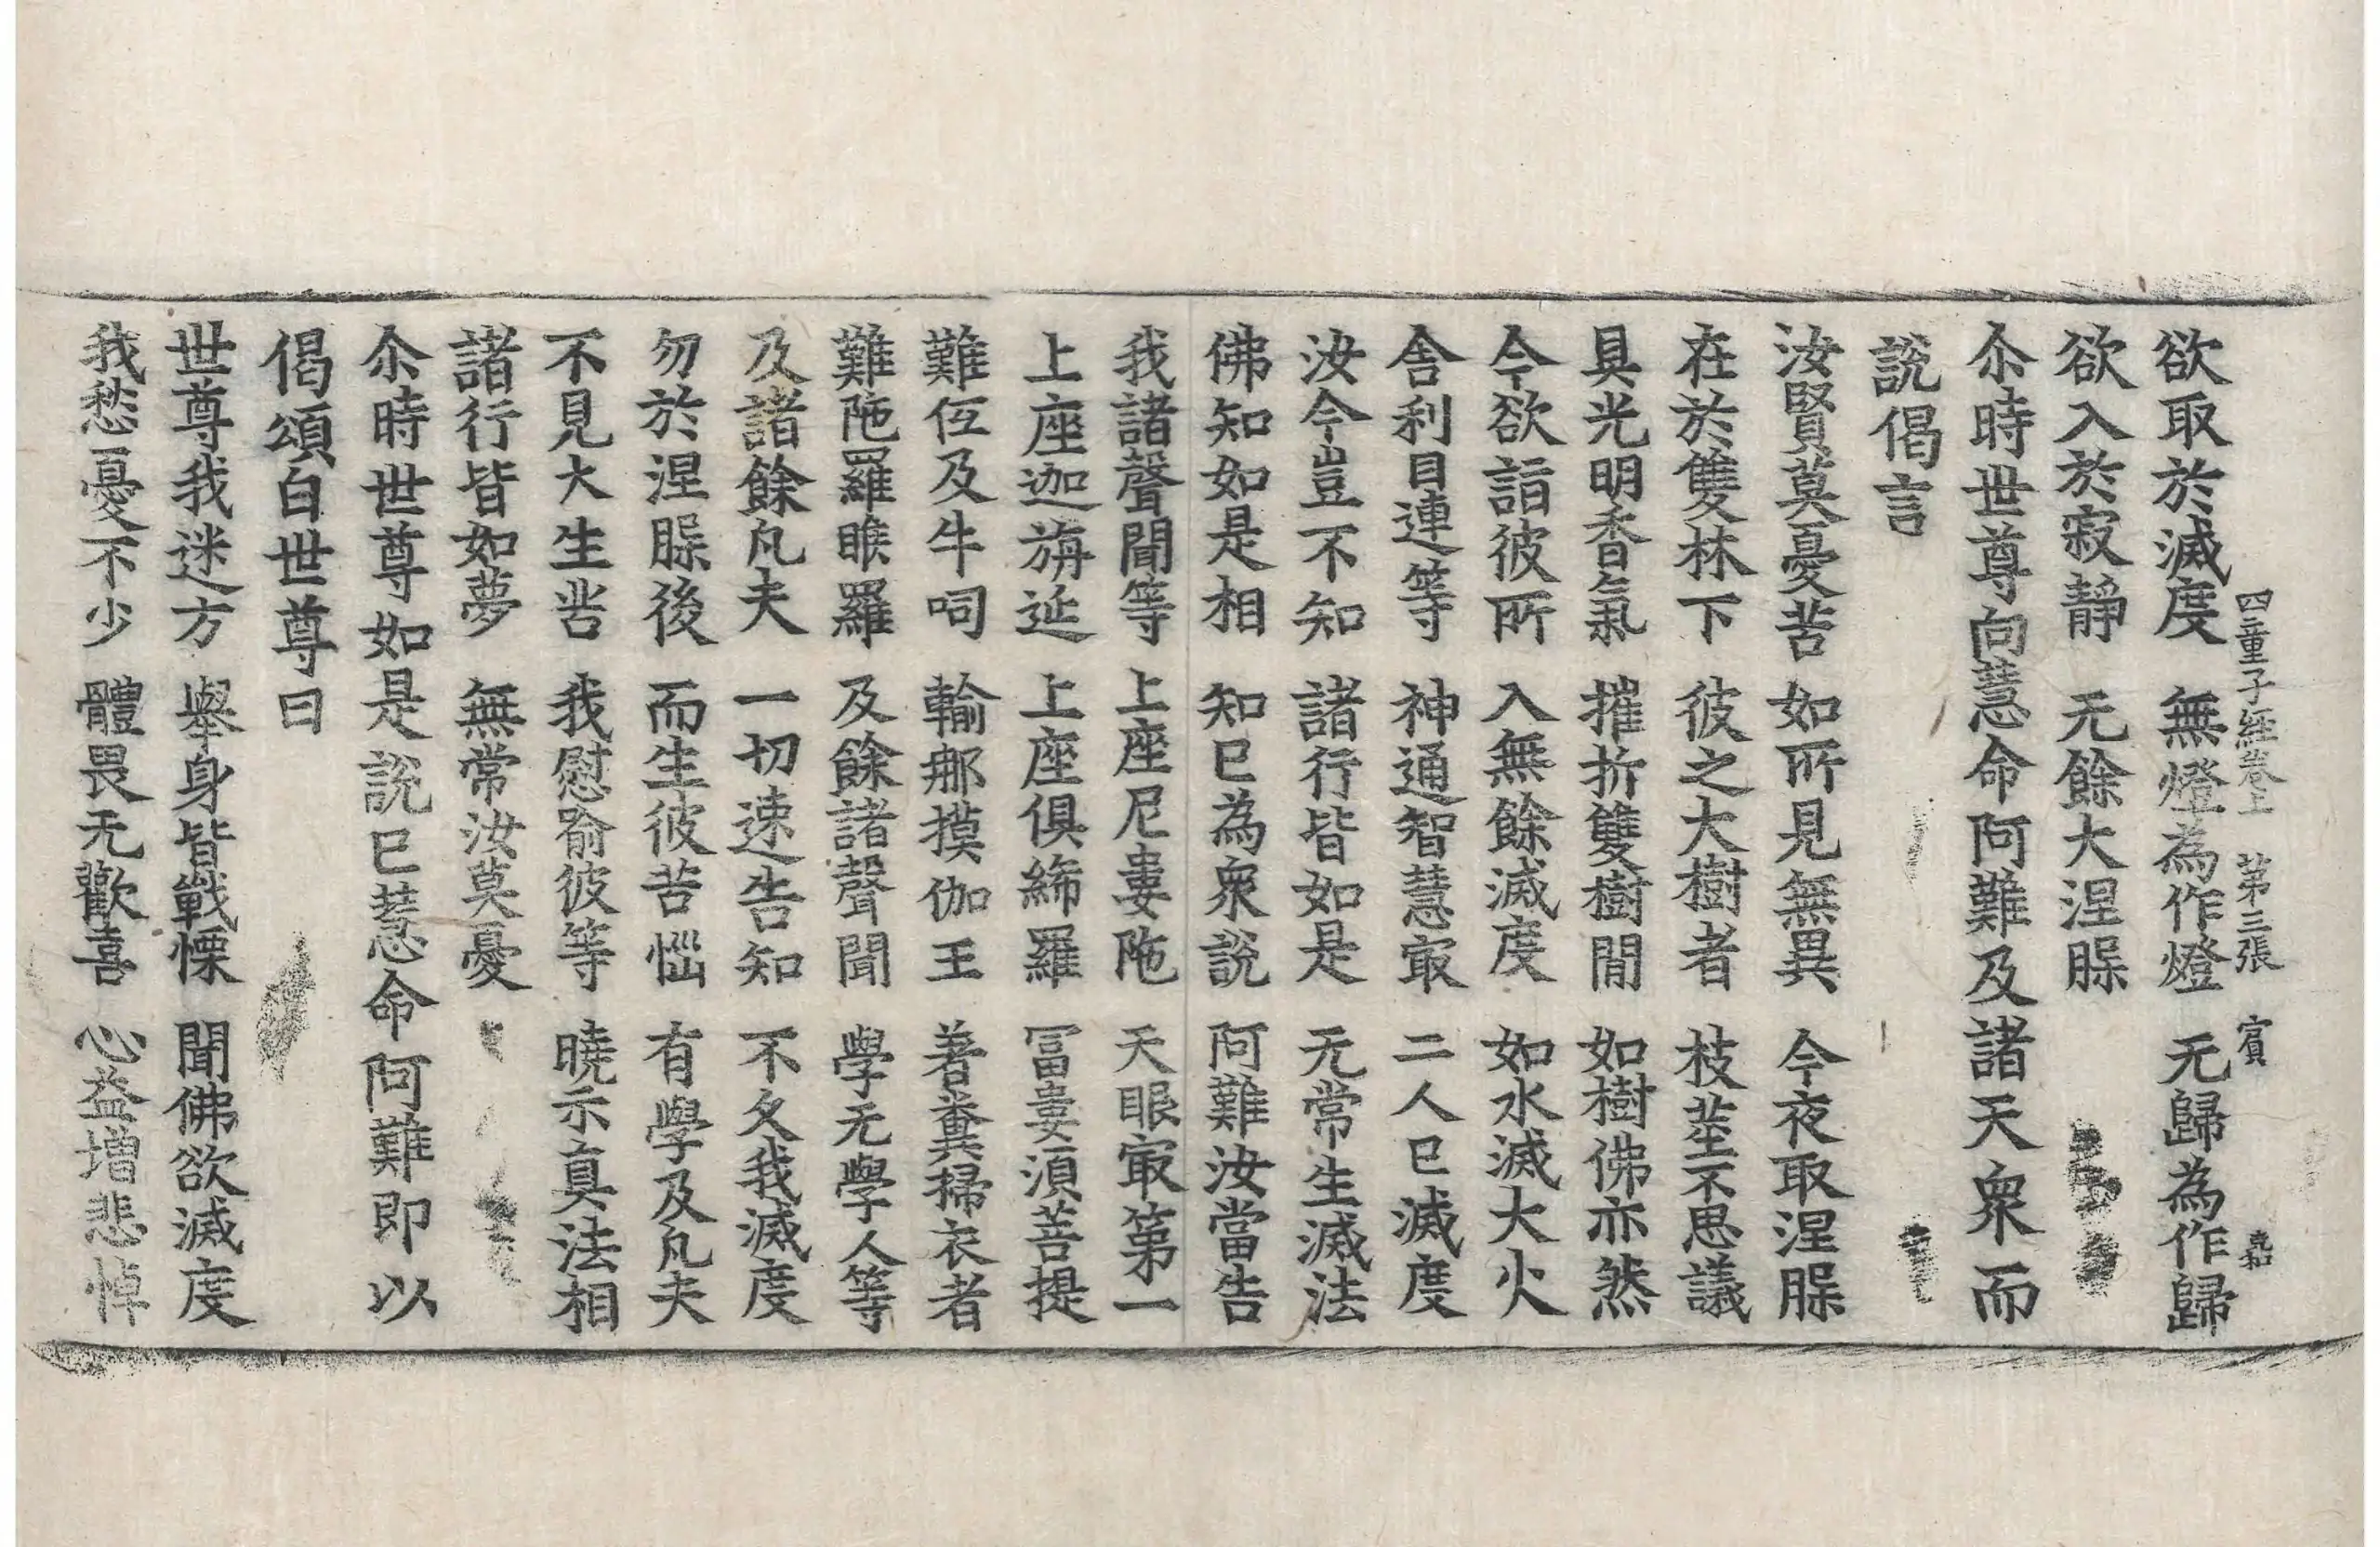 四童子經卷上 第三張 賓
欲取於滅度 無燈為作燈 无歸為作歸
欲入於寂靜 无餘大涅槃
尒時世尊向慧命阿難及諸天衆而
說偈言
汝賢莫憂苦 如所見無異 今夜取涅槃
在於雙林下 彼之大樹者 枝莖不思議
具光明香氣 摧折雙樹間 如樹佛亦然
今欲詣彼所 入無餘滅度 如水滅大火
舍利目連等 神通智慧㝡 二人已滅度
汝今豈不知 諸行皆如是 无常生滅法
佛知如是相 知已為衆說 阿難汝當告
我諸聲聞等 上座尼婁陁 天眼㝡第一
上座迦旃延 上座俱絺羅 冨婁湏菩提
難仾及牛呞 輸那摸伽王 著糞掃衣者
難陁羅睺羅 及餘諸聲聞 學无學人等
及諸餘凡夫 一切速告知 不久我滅度
勿於涅槃後 而生彼苦惱 有學及凡夫
不見大生苦 我慰喻彼等 曉示真法相
諸行皆如夢 無常汝莫憂
尒時世尊如是說已慧命阿難即以
偈頌白世尊曰
世尊我迷方 舉身皆戰慄 聞佛欲滅度
我愁憂不少 體畏无歡喜 心益增悲悼